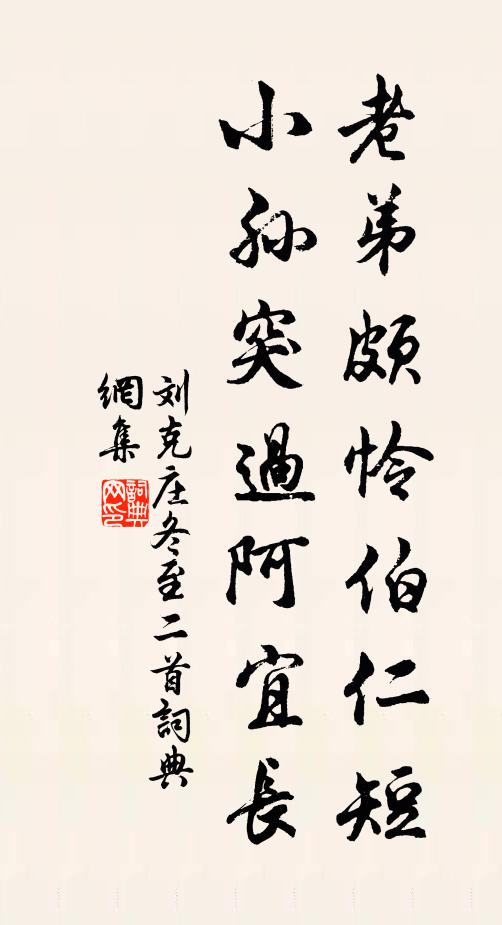 老弟頗怜伯仁短
小孙突過阿宜長
刘克庄冬至二首詞典
網集
詞典
网印